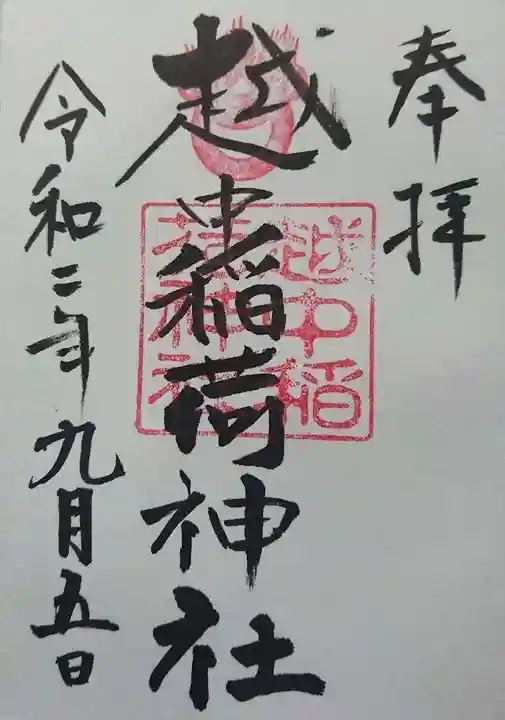 奉拝
越中稲荷神社
越中稲
荷神社
令和二年九月五日